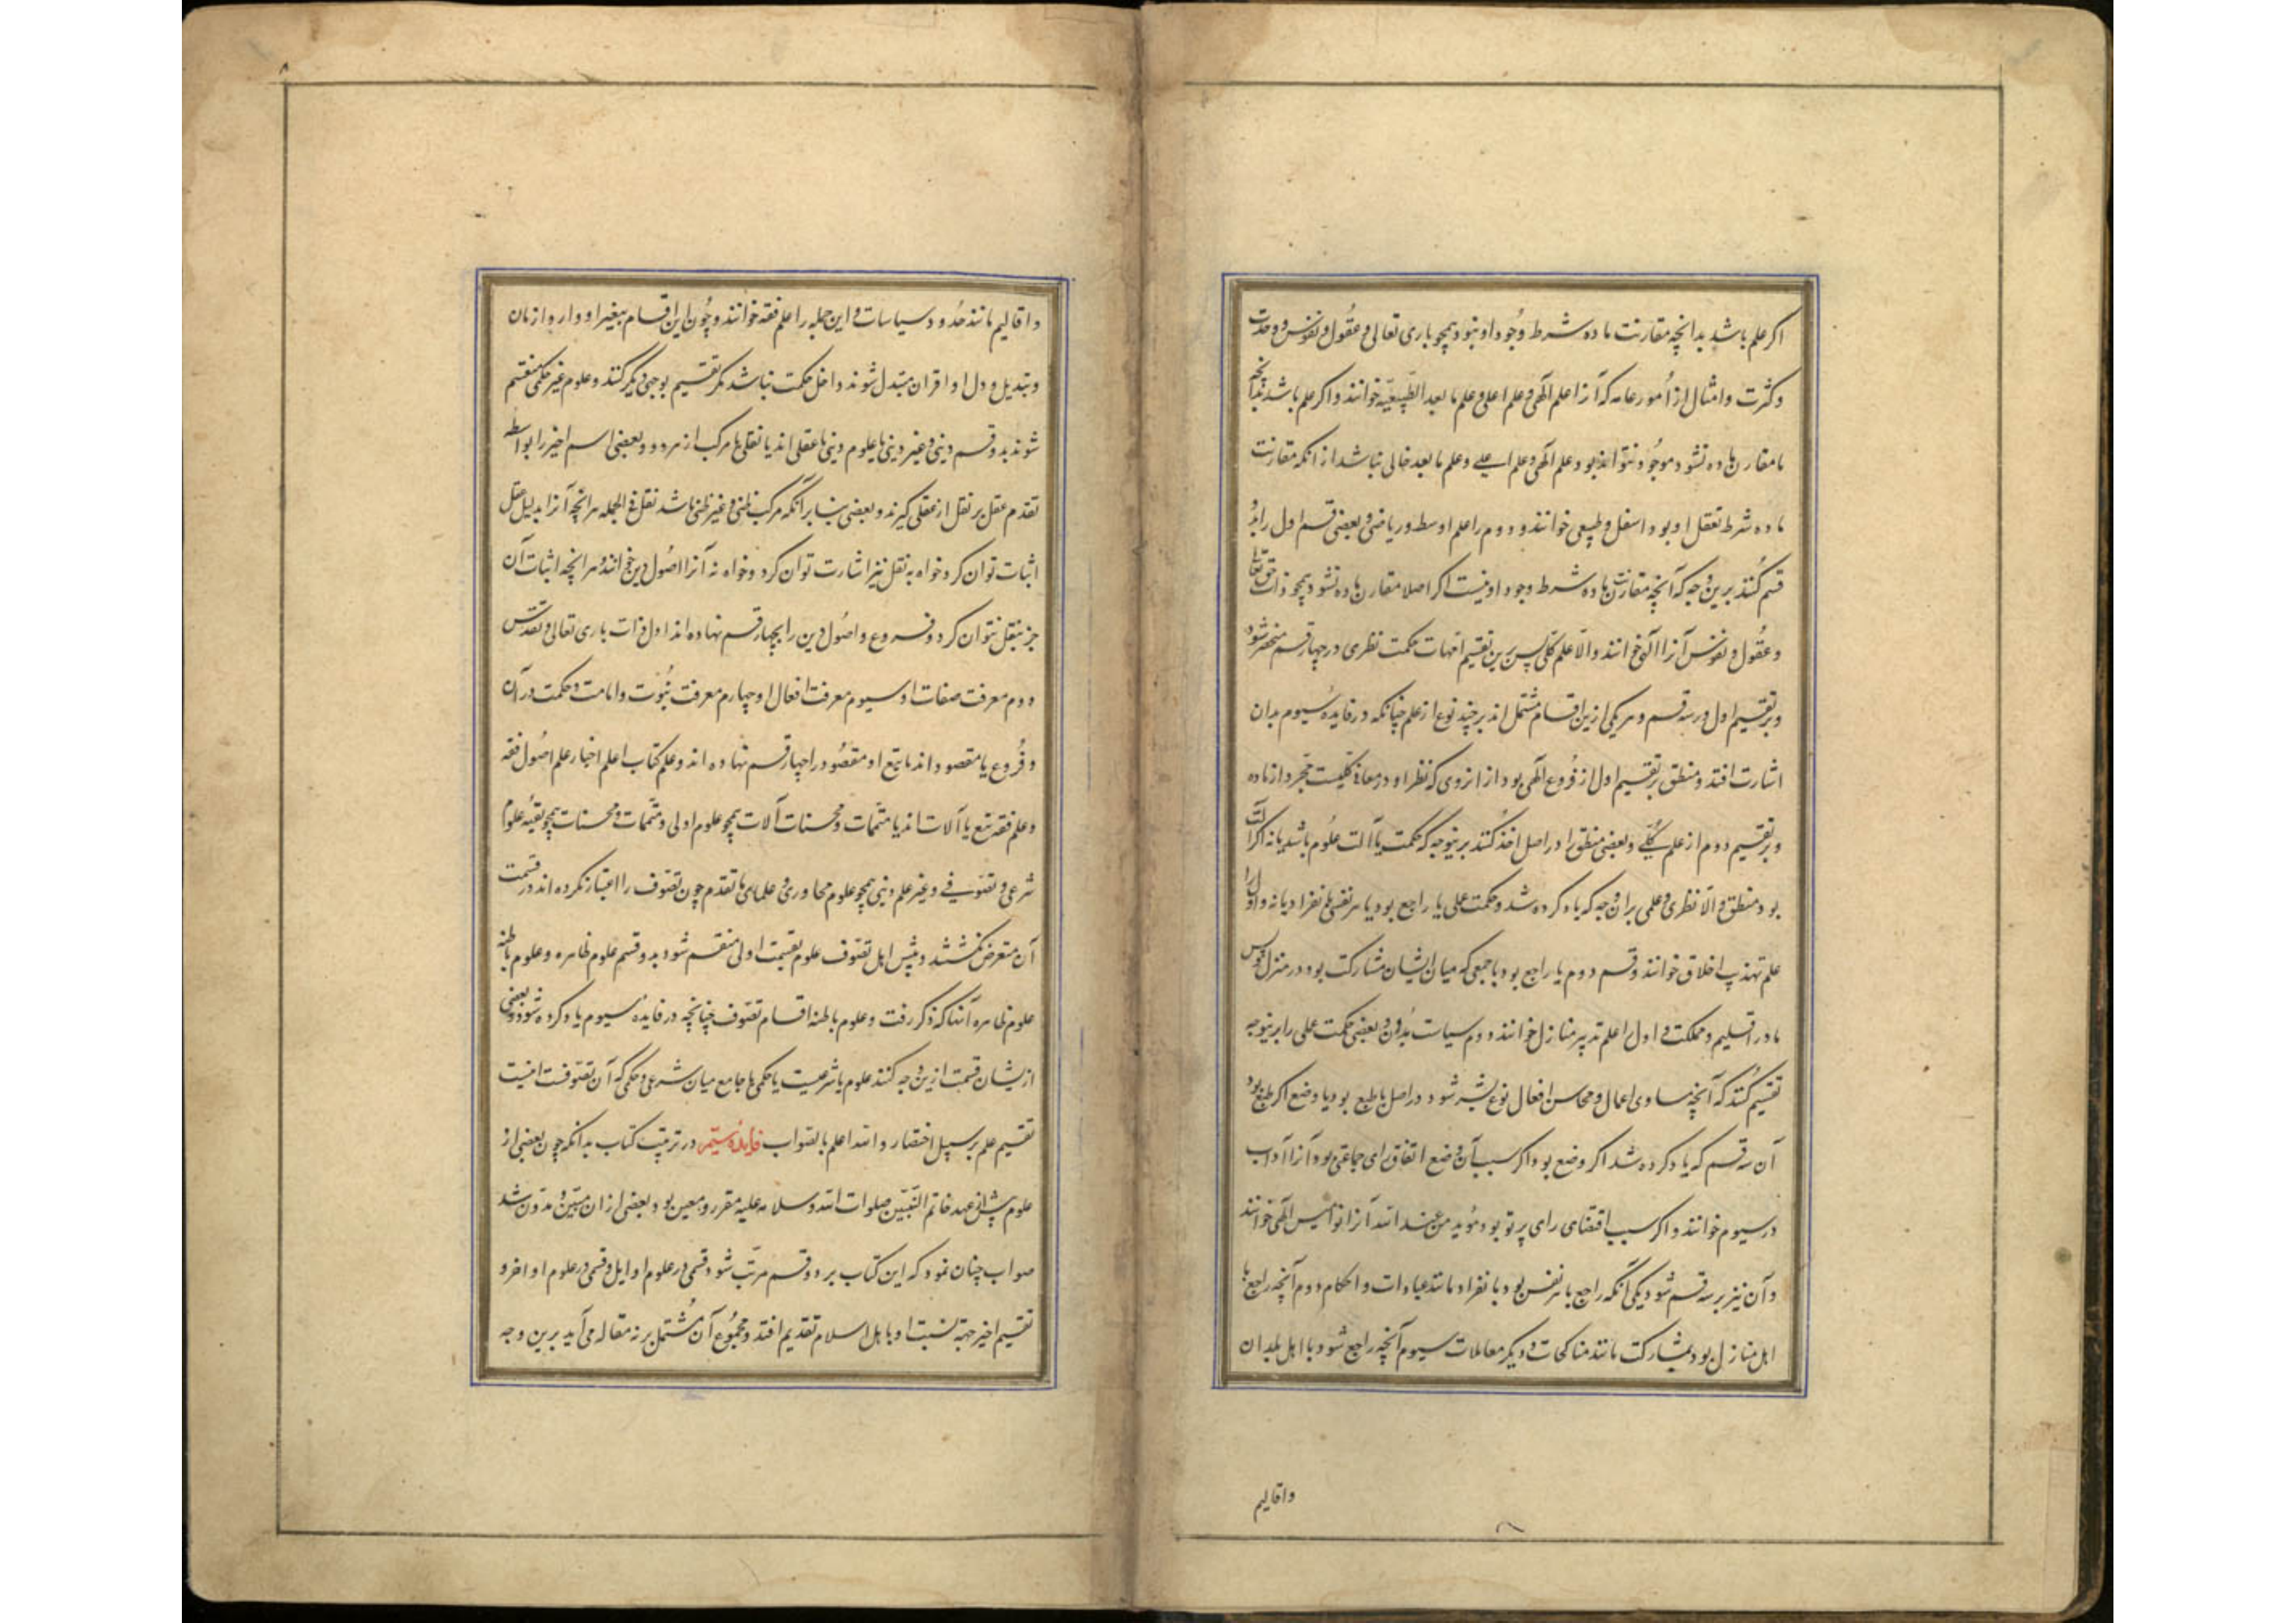 اکر علم باشد بدانچه مقارنت ماده شرط وجود او نبود همچو باری تعالی و عقول و نفوس و وحدت
و کثرت و امثال از امور عامه که آنرا علم الهی و علم اعلی و علم ما بعد الطبیعیه خوانند و اکر علم باشد بدانچه
تا مقارن ماده نشود موجود نتواند بود و علم الهی و علم اعلی و علم ما بعد خالی نباشد از انکه مقارنت
ماده شرط تعقل او بود اسفل و طبیعی خوانند و دوم را علم اوسط و ریاضی و بعضی قسم اول را بدو
قسم کنند برین وجه که آنچه مقارنت ماده شرط وجود او نیست اکر اصلا مقارن ماده نشود همچو ذات حق تعالی
و عقول و نفوس آنرا الهی خوانند و الا علم کلی پس برین تقسیم امهات حکمت نظری در چهار قسم منحصر شود
و بر تقسیم اول در سه قسم و هر یکی ازین اقسام مشتمل اند بر چند نوع از علم چنانکه در فایده سیوم بدان
اشارت افتد و منطق بر تقسیم اول از فروع الهی بود از انروی که نظر او در معانی کلیست مجرد از ماده
و بر تقسیم دوم از علم کلی و بعضی منطق را در اصل اخذ کنند برینوجه که حکمت یا آلت علوم باشد یا نه اکر آلت
بود منطق و الا نظری و عملی بران وجه که یاد کرده شد و حکمت عملی یا راجع بود با هر نفسی بانفراد یا نه و اول را
علم تهذیب اخلاق خوانند و قسم دوم یا راجع بود با جمعی که میان ایشان مشارکت بود در منزل
یا در اقلیم و مملکت و اول را علم تدبیر منازل خوانند و دوم سیاست مدن و بعضی حکمت عملی را برینوجه
تقسیم کنند که آنچه مساوی اعمال و محاسن افعال نوع بشر شود در اصل یا طبع بود یا وضع اکر طبع بود
آن سه قسم که یاد کرده شد اکر وضع بود اکر سبب آن وضع اتفاق رای جماعتی بود آنرا آداب
و رسوم خوانند و اکر سبب اقتضای رای پرتو بود مؤید من عند الله آنرا نوامیس الهی خوانند
و آن نیز بر سه قسم شود یکی آنکه راجع با هر نفس بود بانفراد مانند عبادات و احکام دوم آنچه راجع با
اهل منازل بود بمشارکت مانند مناکحات و دیکر معاملات سیوم آنچه راجع شود با اهل بلدان
واقالیم
و اقالیم مانند حدود و سیاسات و این جمله را علم فقه خوانند و چون این اقسام بتغیر ادوار و ازمان
و تبدیل دول و اقران مبتدل شوند داخل حکمت نباشد مکر تقسیم بوجهی دیکر کنند و علوم غیر حکمی منقسم
شوند بدو قسم دینی و غیر دینی یا علوم دینی یا عقلی اند یا نقلی یا مرکب از هر دو و بعضی اسم اخیر را بواسطه
تقدم عقل بر نقل از عقلی کیرند و بعضی بنا بر آنکه مرکب ظنی و غیر ظنی باشد نقل فی الجمله هر انچه آنرا بدلیل عقل
اثبات توان کرد خواه به نقل نیز اشارت توان کرد و خواه نه آنرا اصول دین خوانند و هر انچه اثبات آن
جز بنقل نتوان کرد و فروع و اصول دین را بچهار قسم نهاده اند اول ذات باری تعالی و تقدس
دوم معرفت صفات او سیوم معرفت افعال او چهارم معرفت نبوت و امامت و حکمت در آن
و فروع یا مقصود اند یا تبع او مقصود را چهار قسم نهاده اند و علم کتاب و علم اخبار علم اصول فقه
و علم فقه تبع یا آلات اند یا متممات و محسنات آلات همچو علوم اولی و متممات و محسنات همچو بقیه علوم
شرعی و تصوف و غیر علم دینی همچو علوم محاوری و علمای ما تقدم چون تصوف را اعتبار نکرده اند در قسمت
آن متعرض نکشتند و پیش اهل تصوف علوم بقسمت اولی منقسم شود بدو قسم علوم ظاهره و علوم باطنه
علوم ظاهره آنها که ذکر رفت و علوم باطنه اقسام تصوف چنانچه در فایده سیوم یاد کرده شود و بعضی
از ایشان قسمت ازین وجه کنند علوم یا شرعیست یا حکمی یا جامع میان شرعی و حکمی که آن تصوفست اینست
تقسیم علم بر سبیل اختصار و الله اعلم بالصواب فایده ستم در ترتیب کتاب بدانکه چون بعضی از
علوم پیش از عهد خاتم النبیین صلوات الله و سلامه علیه مقرر و معین بود و بعضی از ان مبین و مدون شد
صواب چنان نمود که این کتاب بر دو قسم مرتب شود قسمی در علوم اوایل و قسمی در علوم اواخر و
تقسیم اخیر جهة نسبت او با اهل اسلام تقدیم افتد و مجموع آن مشتمل بر نه مقاله می آید برین وجه